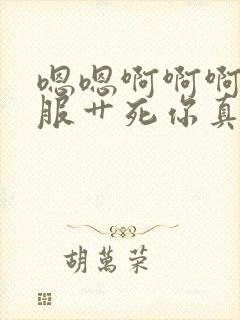 嗯嗯啊啊啊
服艹死你真
胡萬荣